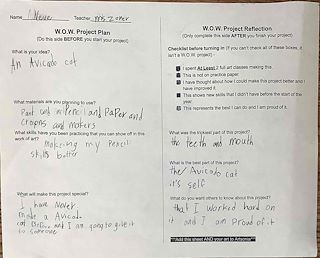 Name Neive Teacher Mrs Zoner
W.O.W. Project Plan
(Do this side BEFORE you start your project)
What is your idea?
An Avicado cat
What materials are you planning to use?
Paint and pencil and PaPer and
crayons and makers
What skills have you been practicing that you can show off in this
work of art?
makeing my pencil
skills better
What will this make project special?
I have Never
made a Avicado
cat Before and I am going to give it
to someone
W.O.W. Project Reflection
(Only complete this side AFTER you finish your project)
Checklist before turning in (If you can't check all of these boxes, it
isn't a W.O.W. project)
I spent At Least 2 full art classes making this.
This is not on practice paper.
I have thought about how I could make this project better and
have improved it.
This shows new skills that I didn't have before the start of the
year.
This represents the best I can do and I am proud of it.
What was the trickiest part of this project?
the teeth and mouth
What is the best part of this project?
the Avicado cat
it's self
What do you want others to know about this project?
that I worked hard on
it and I am Proud of it
**Add this sheet AND your art to Artsonia**